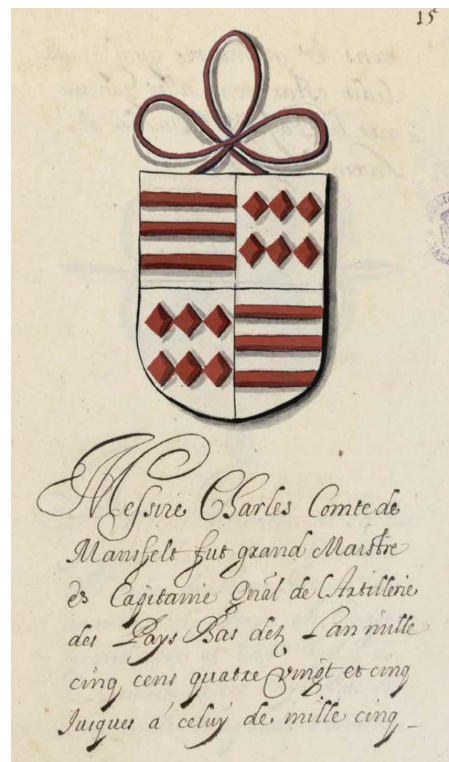 15
Messire Charles Comte de
Mansfelt fut grand Maistre
et Capitanie Gnal de l'Artillerie
des Pays Bas dez Lan mille
cinq cens quatre vingt et cinq
Jusques á celuÿ de mille cinq _